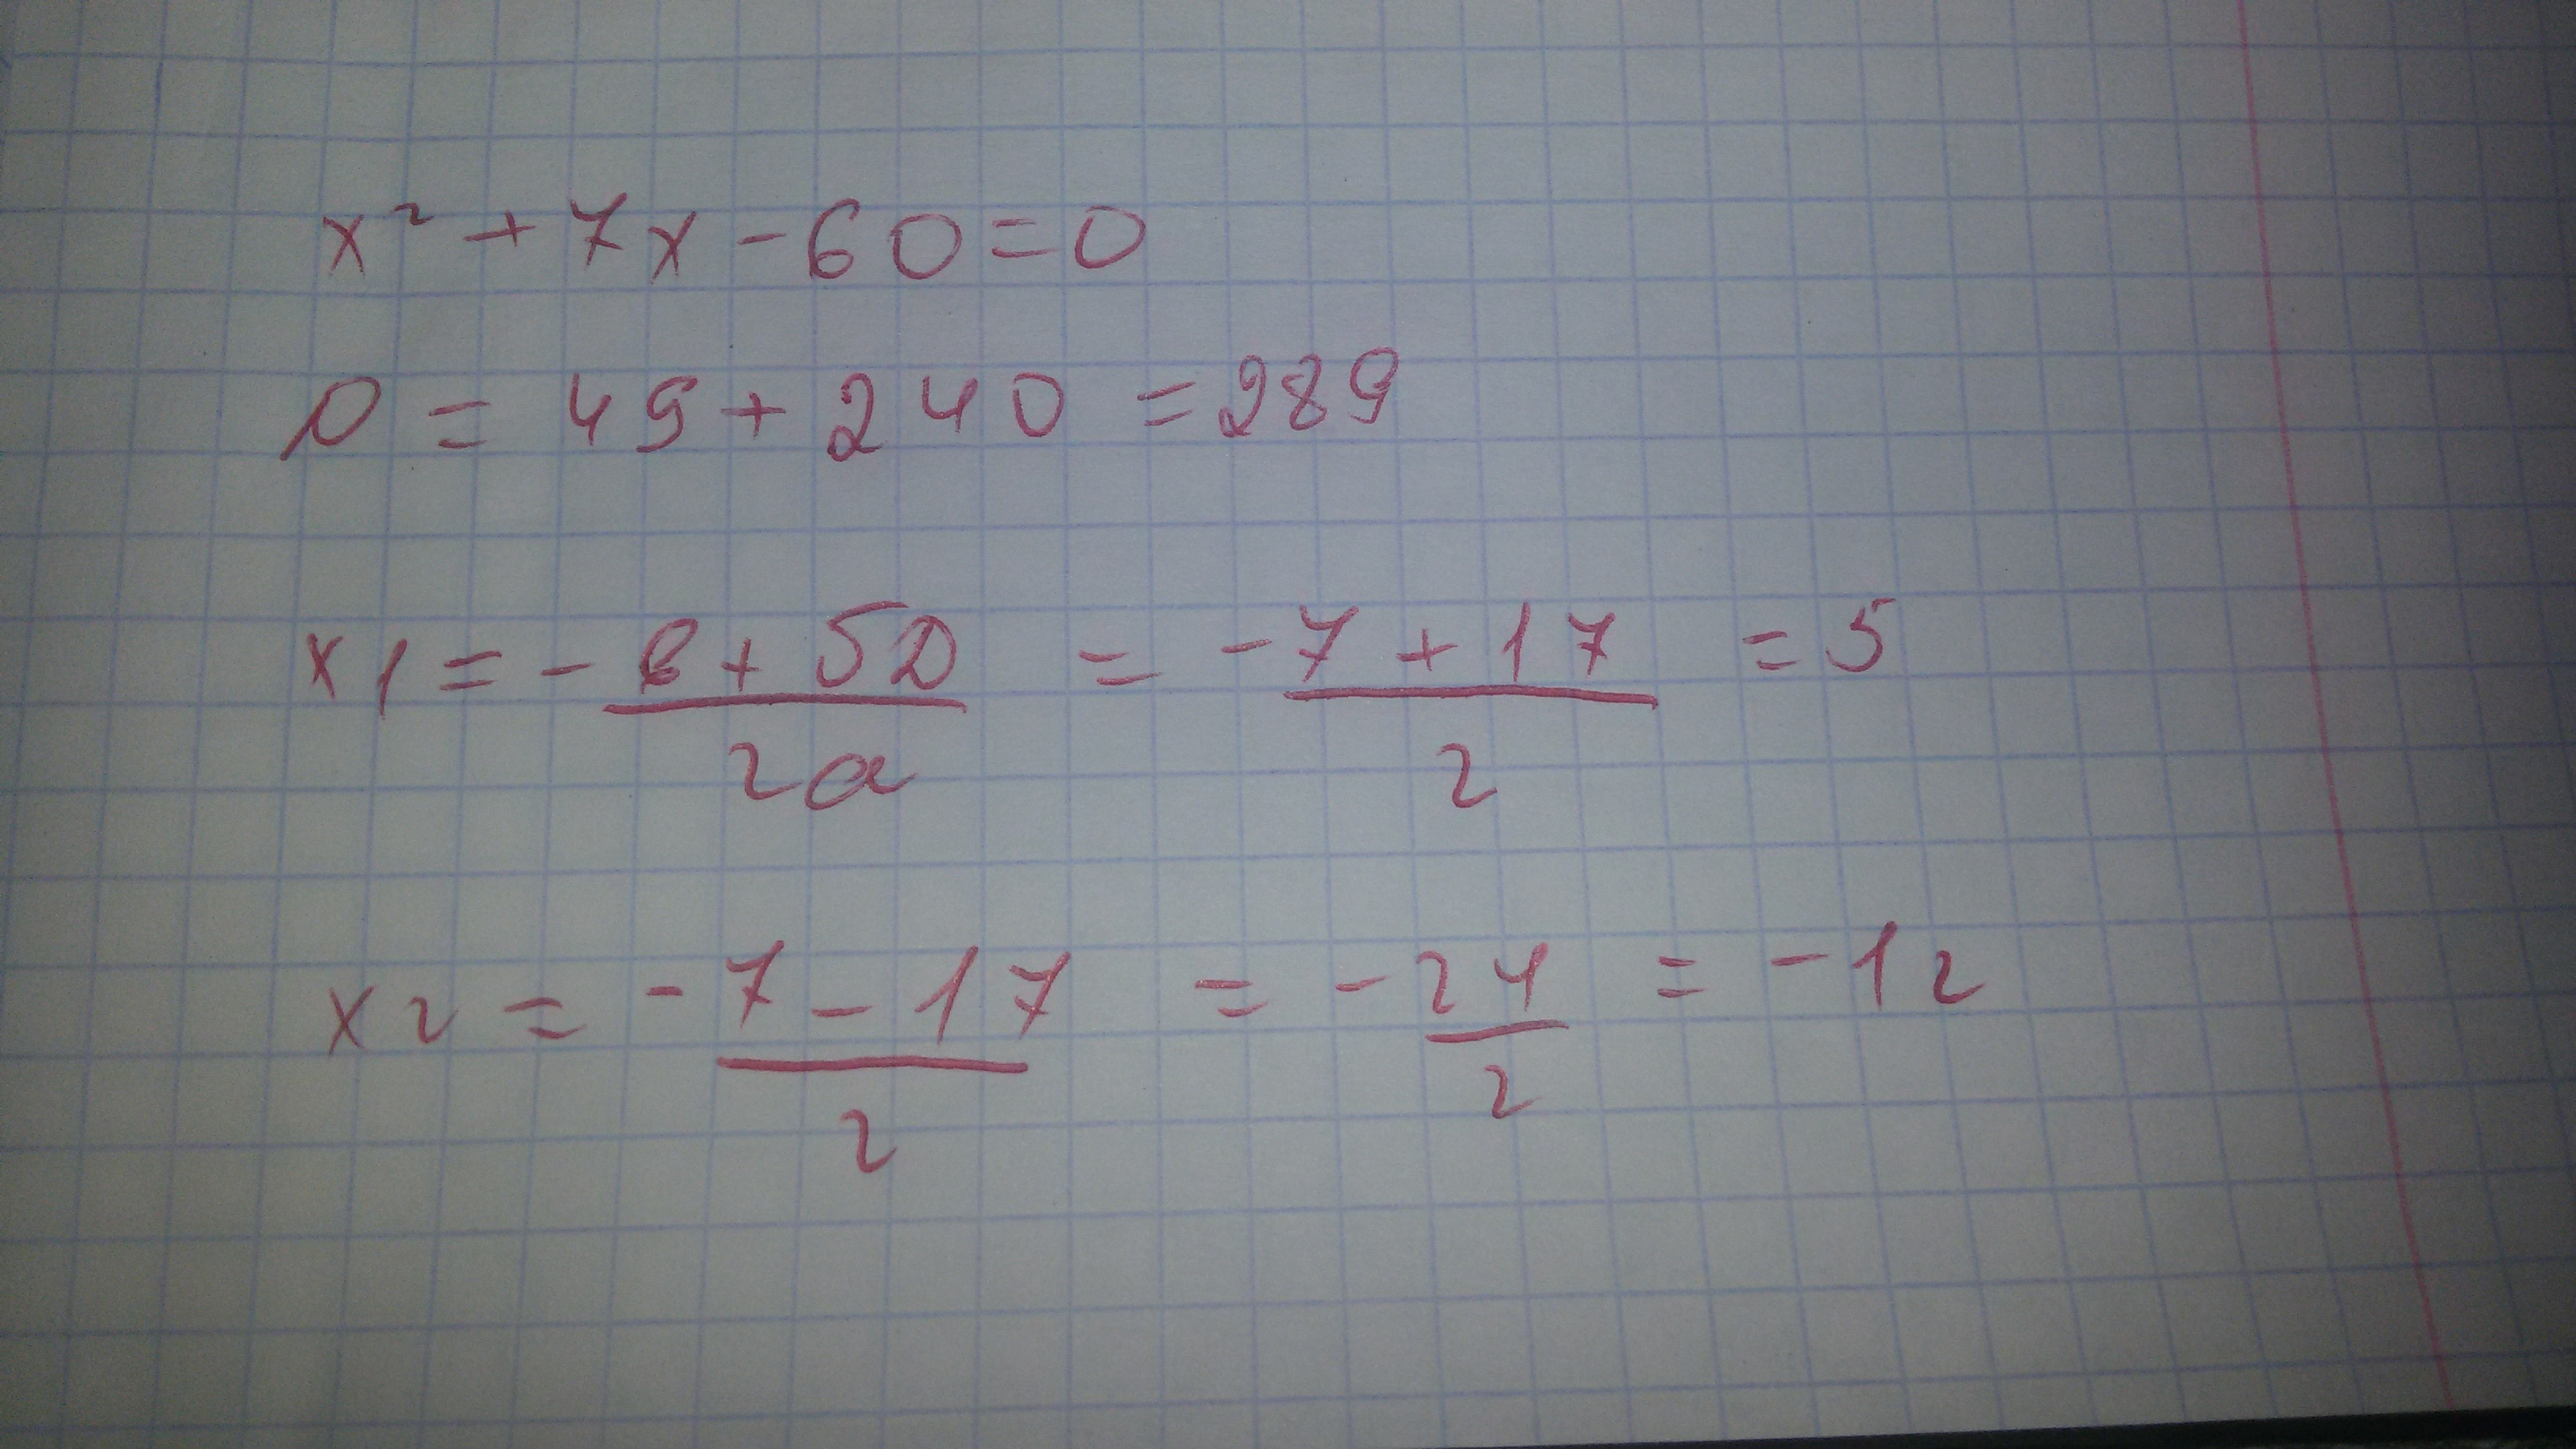 x² + 7x - 60 = 0
D = 49 + 240 = 289
x1 = -в + √D / 2a = -7 + 17 / 2 = 5
x2 = -7 - 17 / 2 = -24 / 2 = -12